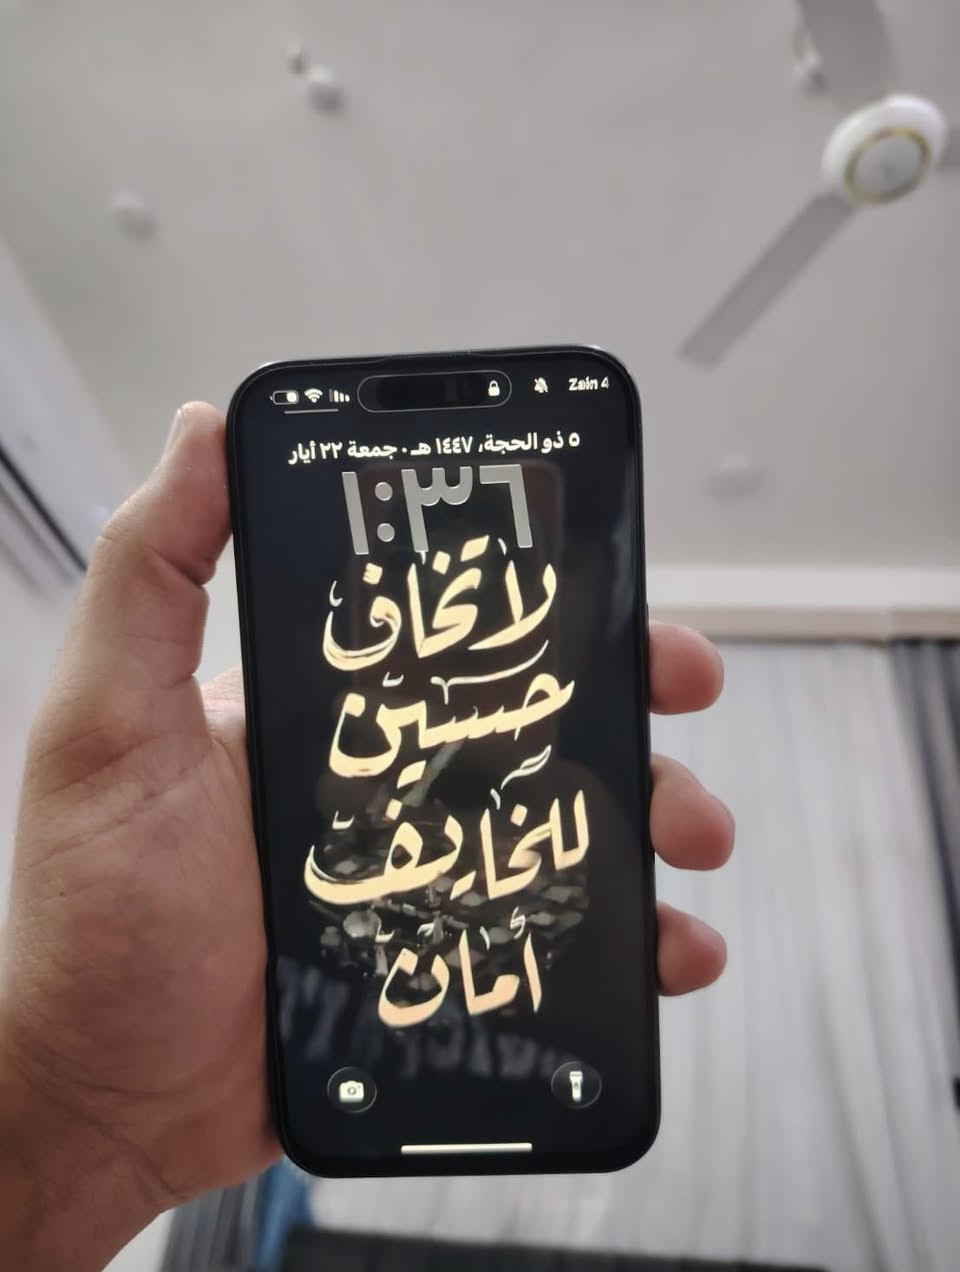 Zain 4
٥ ذو الحجة، ١٤٤٧ هـ · جمعة ٢٢ أيار
١:٣٦
لا تخاف
حسين
للخايف
أمان